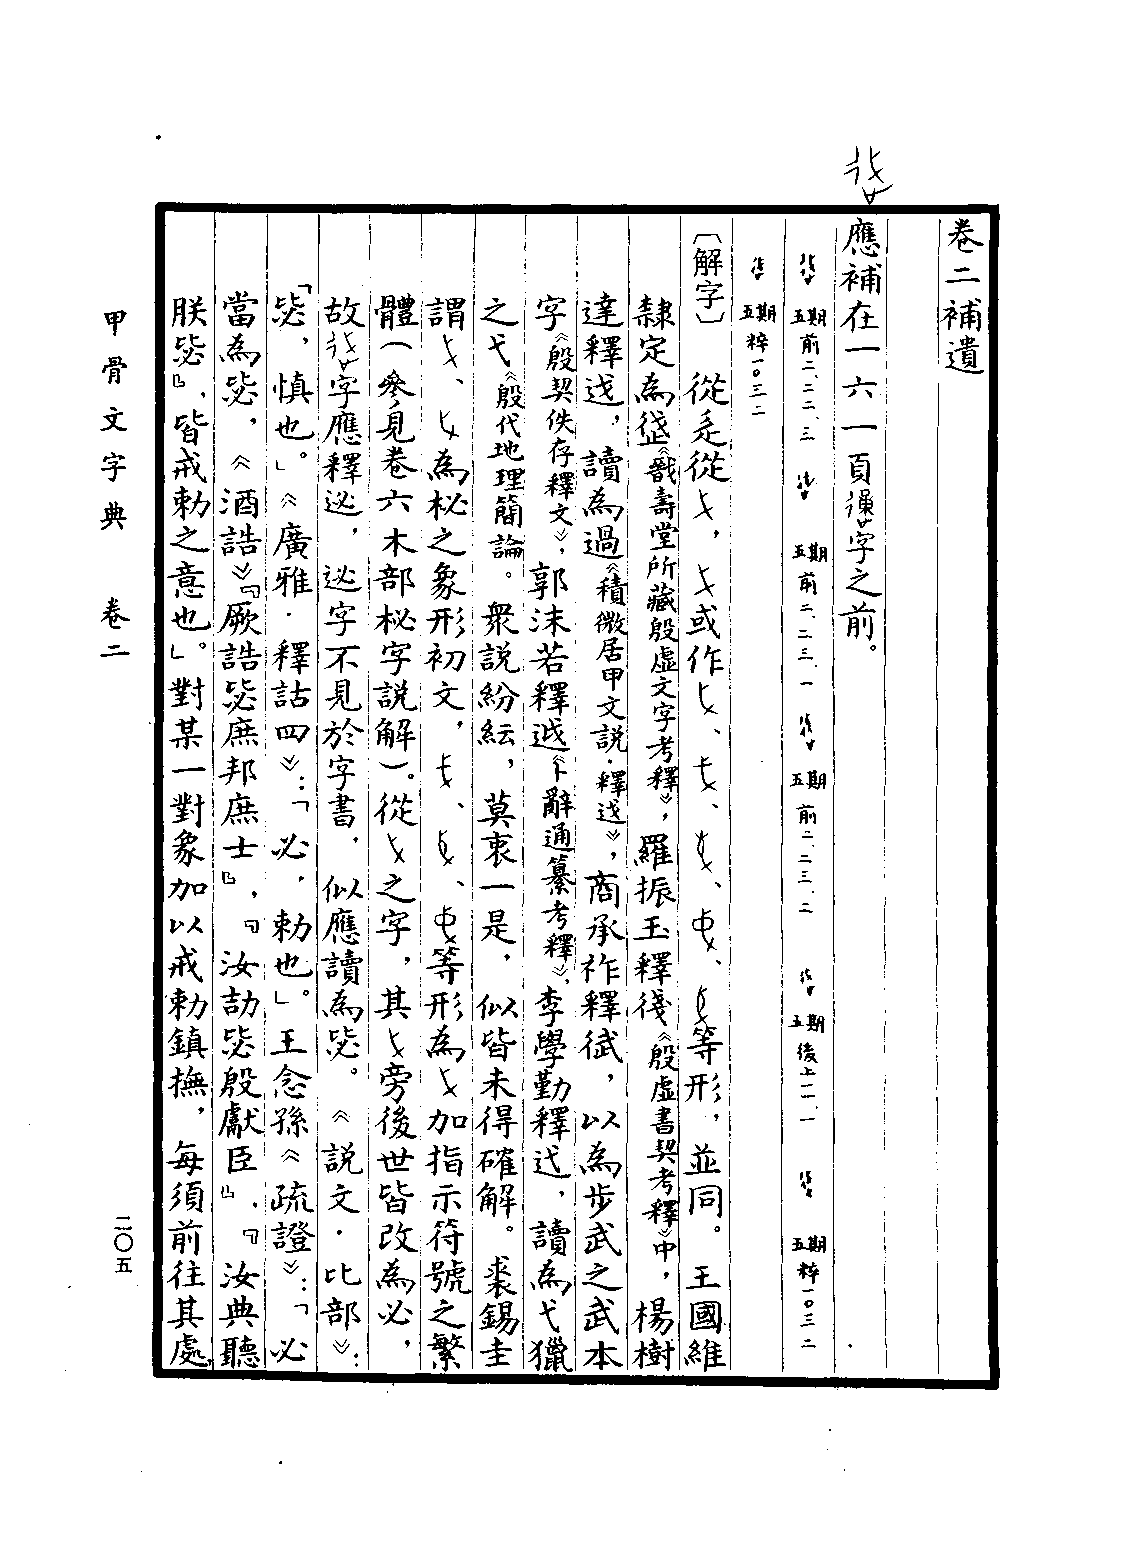 卷二補遺
應補在一六一頁字之前。
五期 前二、二二、三 五期 前二、二三、一 五期 前二、二三、二 五期 後上一一、一 五期 粹一〇三二
五期 粹一〇三二
〔解字〕 從辵從，或作、、、、等形，並同。王國維
隸定為《戩壽堂所藏殷虛文字考釋》，羅振玉釋後《殷虛書契考釋》中，楊樹
達釋，讀為過《積微居甲文說·釋》，商承祚釋，以為步武之武本
字《殷契佚存釋文》，郭沫若釋《卜辭通纂考釋》，李學勤釋，讀為弋獵
之弋《殷代地理簡論。眾說紛紜，莫衷一是，似皆未得確解。裘錫圭
謂、為柲之象形初文，、、等形為加指示符號之繁
體（參見卷六木部柲字說解）。從之字，其旁後世皆改為必，
故字應釋䢌，䢌字不見於字書，似應讀為毖。《說文·比部》：
「毖，慎也。」《廣雅·釋詁四》：「必，勅也」。王念孫《疏證》：「必
當為毖，《酒誥》『厥誥毖庶邦庶士』，『汝劼毖殷獻臣』，『汝典聽
朕毖』，皆戒勅之意也。」對某一對象加以戒勅鎮撫，每須前往其處
甲骨文字典 卷二
二〇五